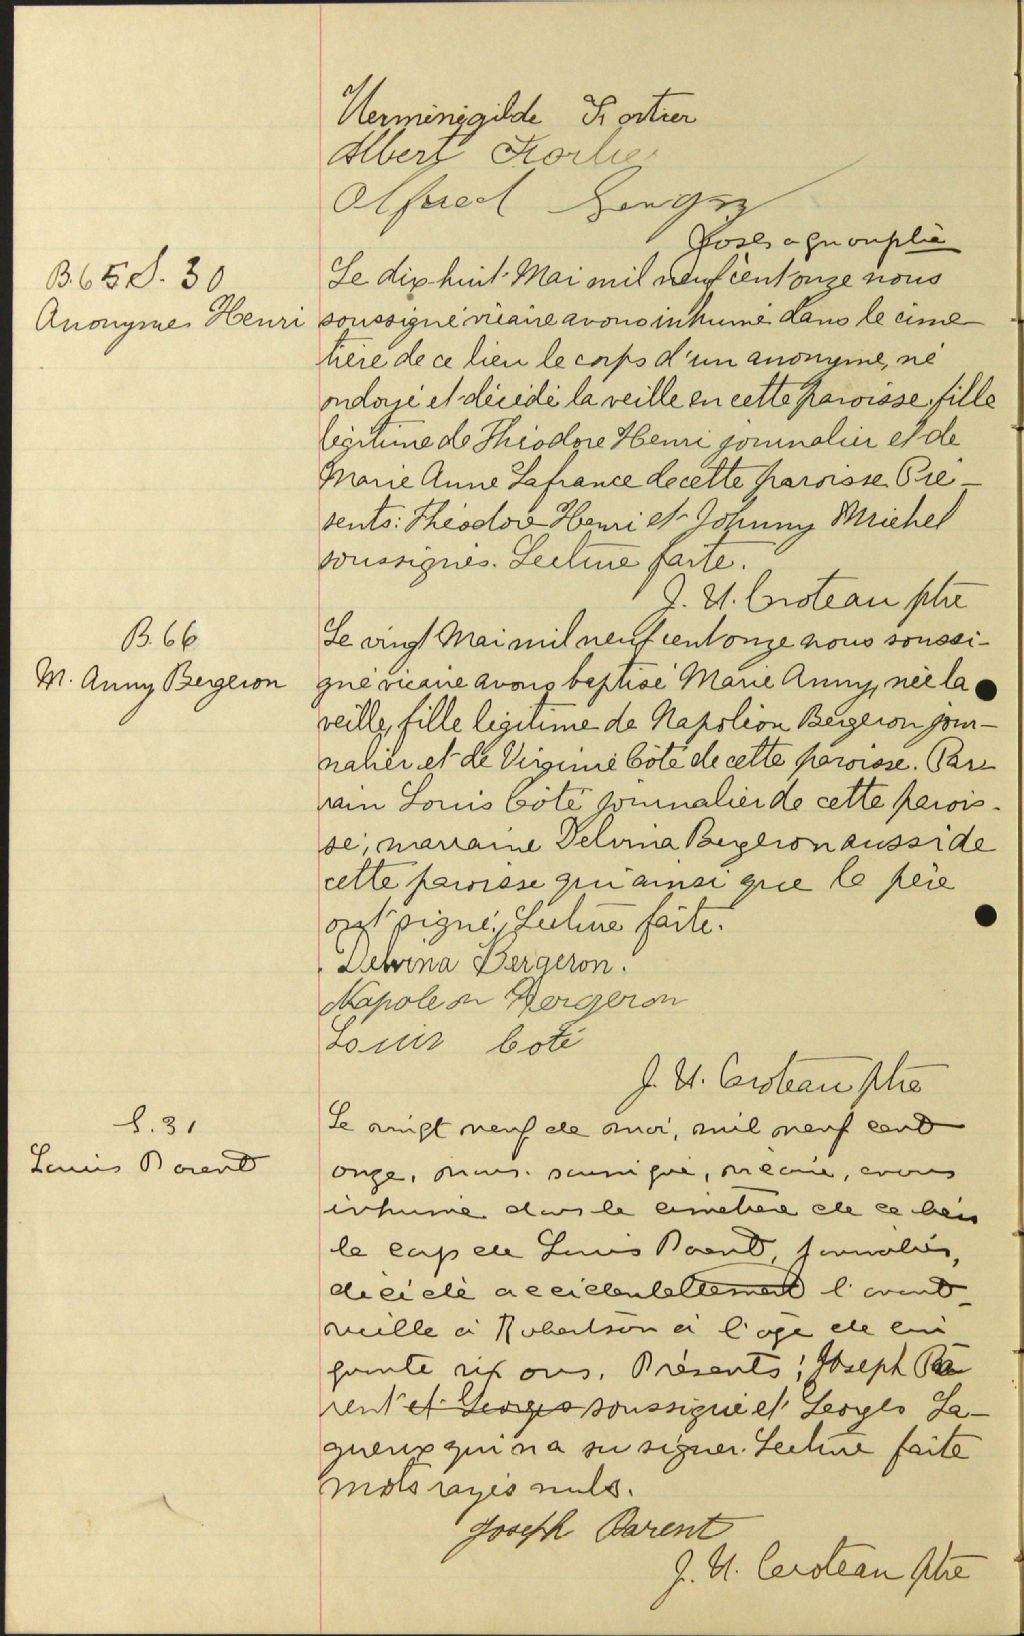 Herménégilde Fortier
Albert Fortier
Alfred
B. 65 S. 30
Anonyme Henri
Le dix huit Mai mil neuf cent onze nous
soussigné vicaire avons inhumé dans le cime-
tière de ce lieu le corps d'un anonyme, né
ondoyé et décédé la veille en cette paroisse, fille
légitime de Théodore Henri journalier et de
Marie Anne Lafrance de cette paroisse Pré-
sents: Théodore Henri et Johnny Michel
soussignés. Lecture faite.
J. U. Croteau ptre
B. 66
M. Anny Bergeron
Le vingt Mai mil neuf cent onze nous soussi-
gné vicaire avons baptisé Marie Anny, née la
veille, fille légitime de Napoléon Bergeron jour-
nalier et de Virginie Côté de cette paroisse. Par-
rain Louis Côté journalier de cette parois-
se; marraine Delvina Bergeron aussi de
cette paroisse qui ainsi que le père
ont signé. Lecture faite.
Delvina Bergeron.
Napoleon Bergeron
Louis Coté
J. U. Croteau ptre
S. 31
Louis Parent
Le vingt neuf de mai, mil neuf cent
onze, nous soussigné, vicaire, avons
inhumé dans le cimetière de ce lieu
le corps de Louis Parent, journalier,
décédé accidentellement l'avant-
veille à Robertson à l'age de cin
quante six ans. Présents: Joseph Pa
rent et Georges soussigné et Georges La-
gueux qui n'a su signer. Lecture faite
mots rayés nuls.
Joseph Parent
J. U. Croteau ptre